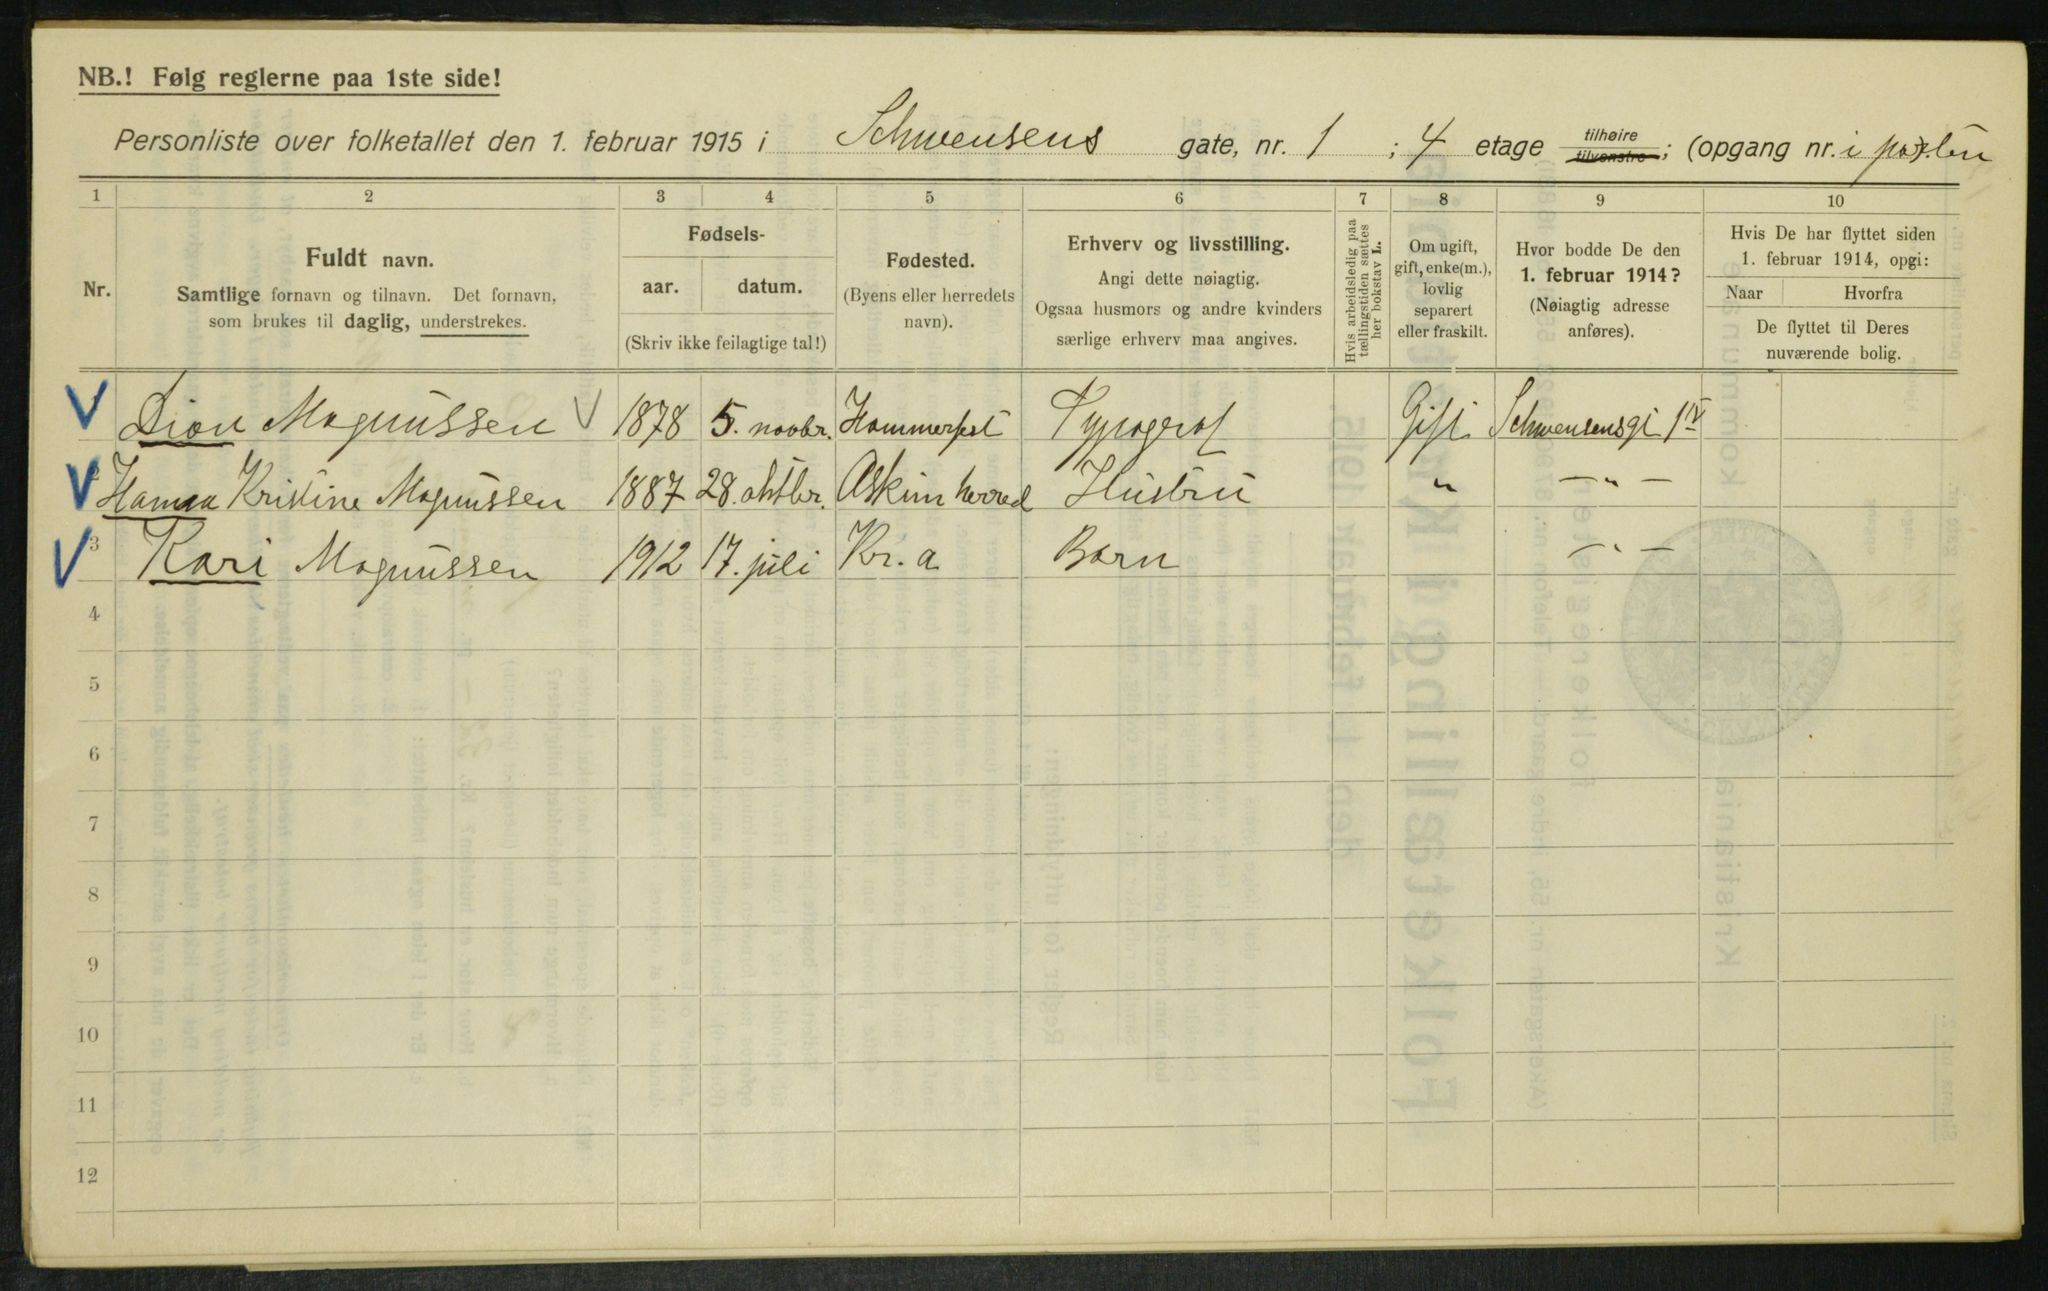 NB.! Følg reglerne paa 1ste side!
Personliste over folketallet den 1. februar 1915 i Schwensens gate, nr. 1 ; 4 etage tilhøire tilvenstre; (opgang nr. i porten
1 2 3 4 5 6 7 8 9 10
Nr.
Fuldt navn.
Samtlige fornavn og tilnavn. Det fornavn,
som brukes til daglig, understrekes.
Fødsels-
aar. datum.
(Skriv ikke feilagtige tal!)
Fødested.
(Byens eller herredets
navn).
Erhverv og livsstilling.
Angi dette nøiagtig.
Ogsaa husmors og andre kvinders
særlige erhverv maa angives.
Hvis arbeidsledig paa
tællingstiden sættes
her bokstav L.
Om ugift,
gift, enke(m.),
lovlig
separert
eller fraskilt.
Hvor bodde De den
1. februar 1914?
(Nøiagtig adresse
anføres).
Hvis De har flyttet siden
1. februar 1914, opgi:
Naar Hvorfra
De flyttet til Deres
nuværende bolig.
V Dion Magnussen V 1878 5. novbr. Hammerfest Typograf Gift Schwensensgt 1 IV
V 2 Hanna Kristine Magnussen 1887 28. oktbr. Askim herred Hustru " — " —
V 3 Kari Magnussen 1912 17. juli Kr.a Barn — " —
4
5
6
7
8
9
10
11
12